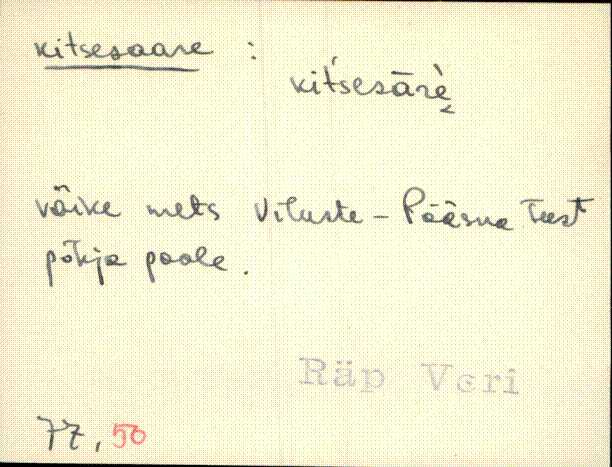 kitsesaare :
kit́sesārè̬
väike mets Viluste - Pääsna teest
põhja poole.
Räp Veri
77, 50